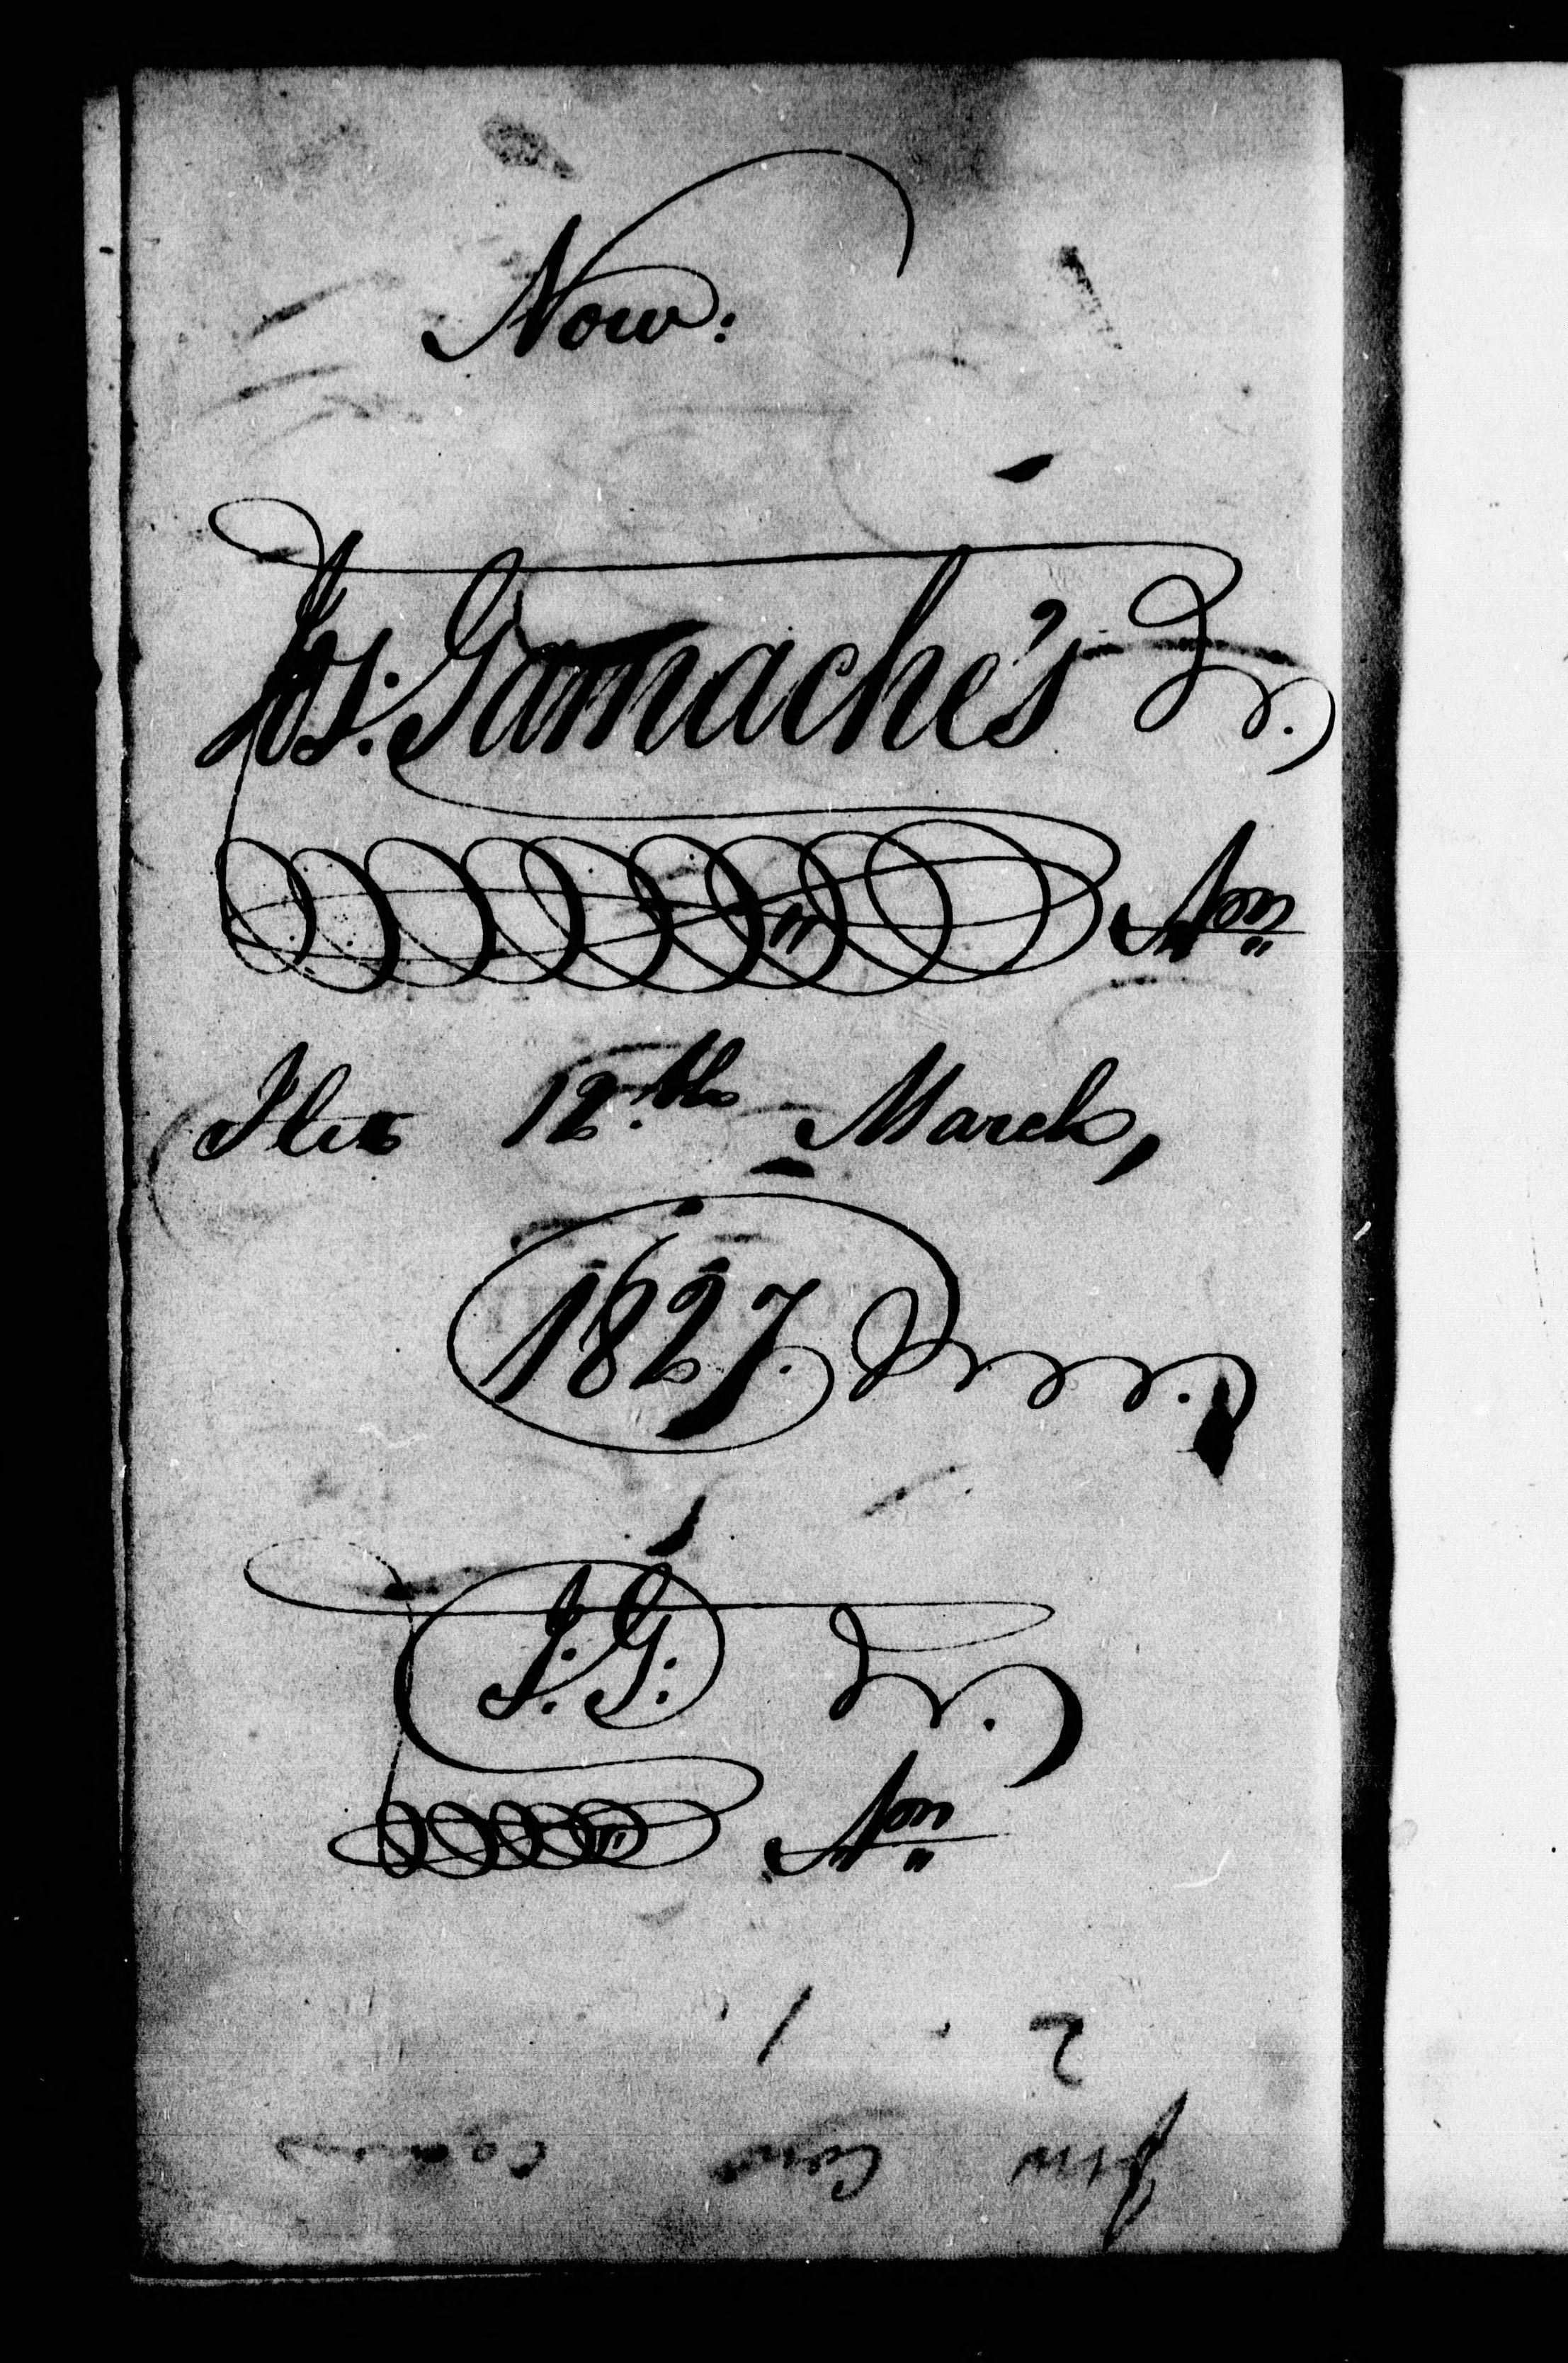 Now:
Jos. Gamache's Jr.
The 12.th March,
1827.
J. G. Jr.
2 . 1